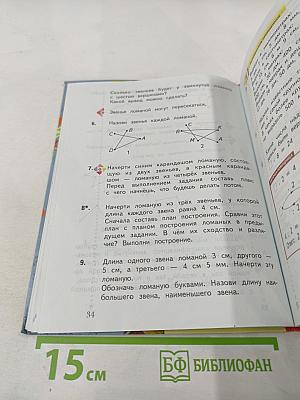 Сколько звеньев будет у замкнутой ломаной
с шестью вершинами?
Какой вывод можно сделать?
Звенья ломаной могут пересекаться.
6. Назови звенья каждой ломаной.
C B D A 1
B C K D A 2
7. Начерти синим карандашом ломаную, состоя-
щую из двух звеньев, а красным каранда-
шом — ломаную из четырёх звеньев.
Перед выполнением задания составь план,
с чего начнёшь, что будешь делать потом.
8*. Начерти ломаную из трёх звеньев, у которой
длина каждого звена равна 4 см.
Сначала составь план построения. Сравни этот
план с планом построения ломаной в преды-
дущем задании. В чём их сходство и разли-
чие? Выполни построение.
9. Длина одного звена ломаной 3 см, другого —
5 см, а третьего — 4 см 5 мм. Начерти эту
ломаную.
Обозначь ломаную буквами. Назови длину наи-
большего звена, наименьшего звена.
34
15 см
БФ БИБЛИОФАН